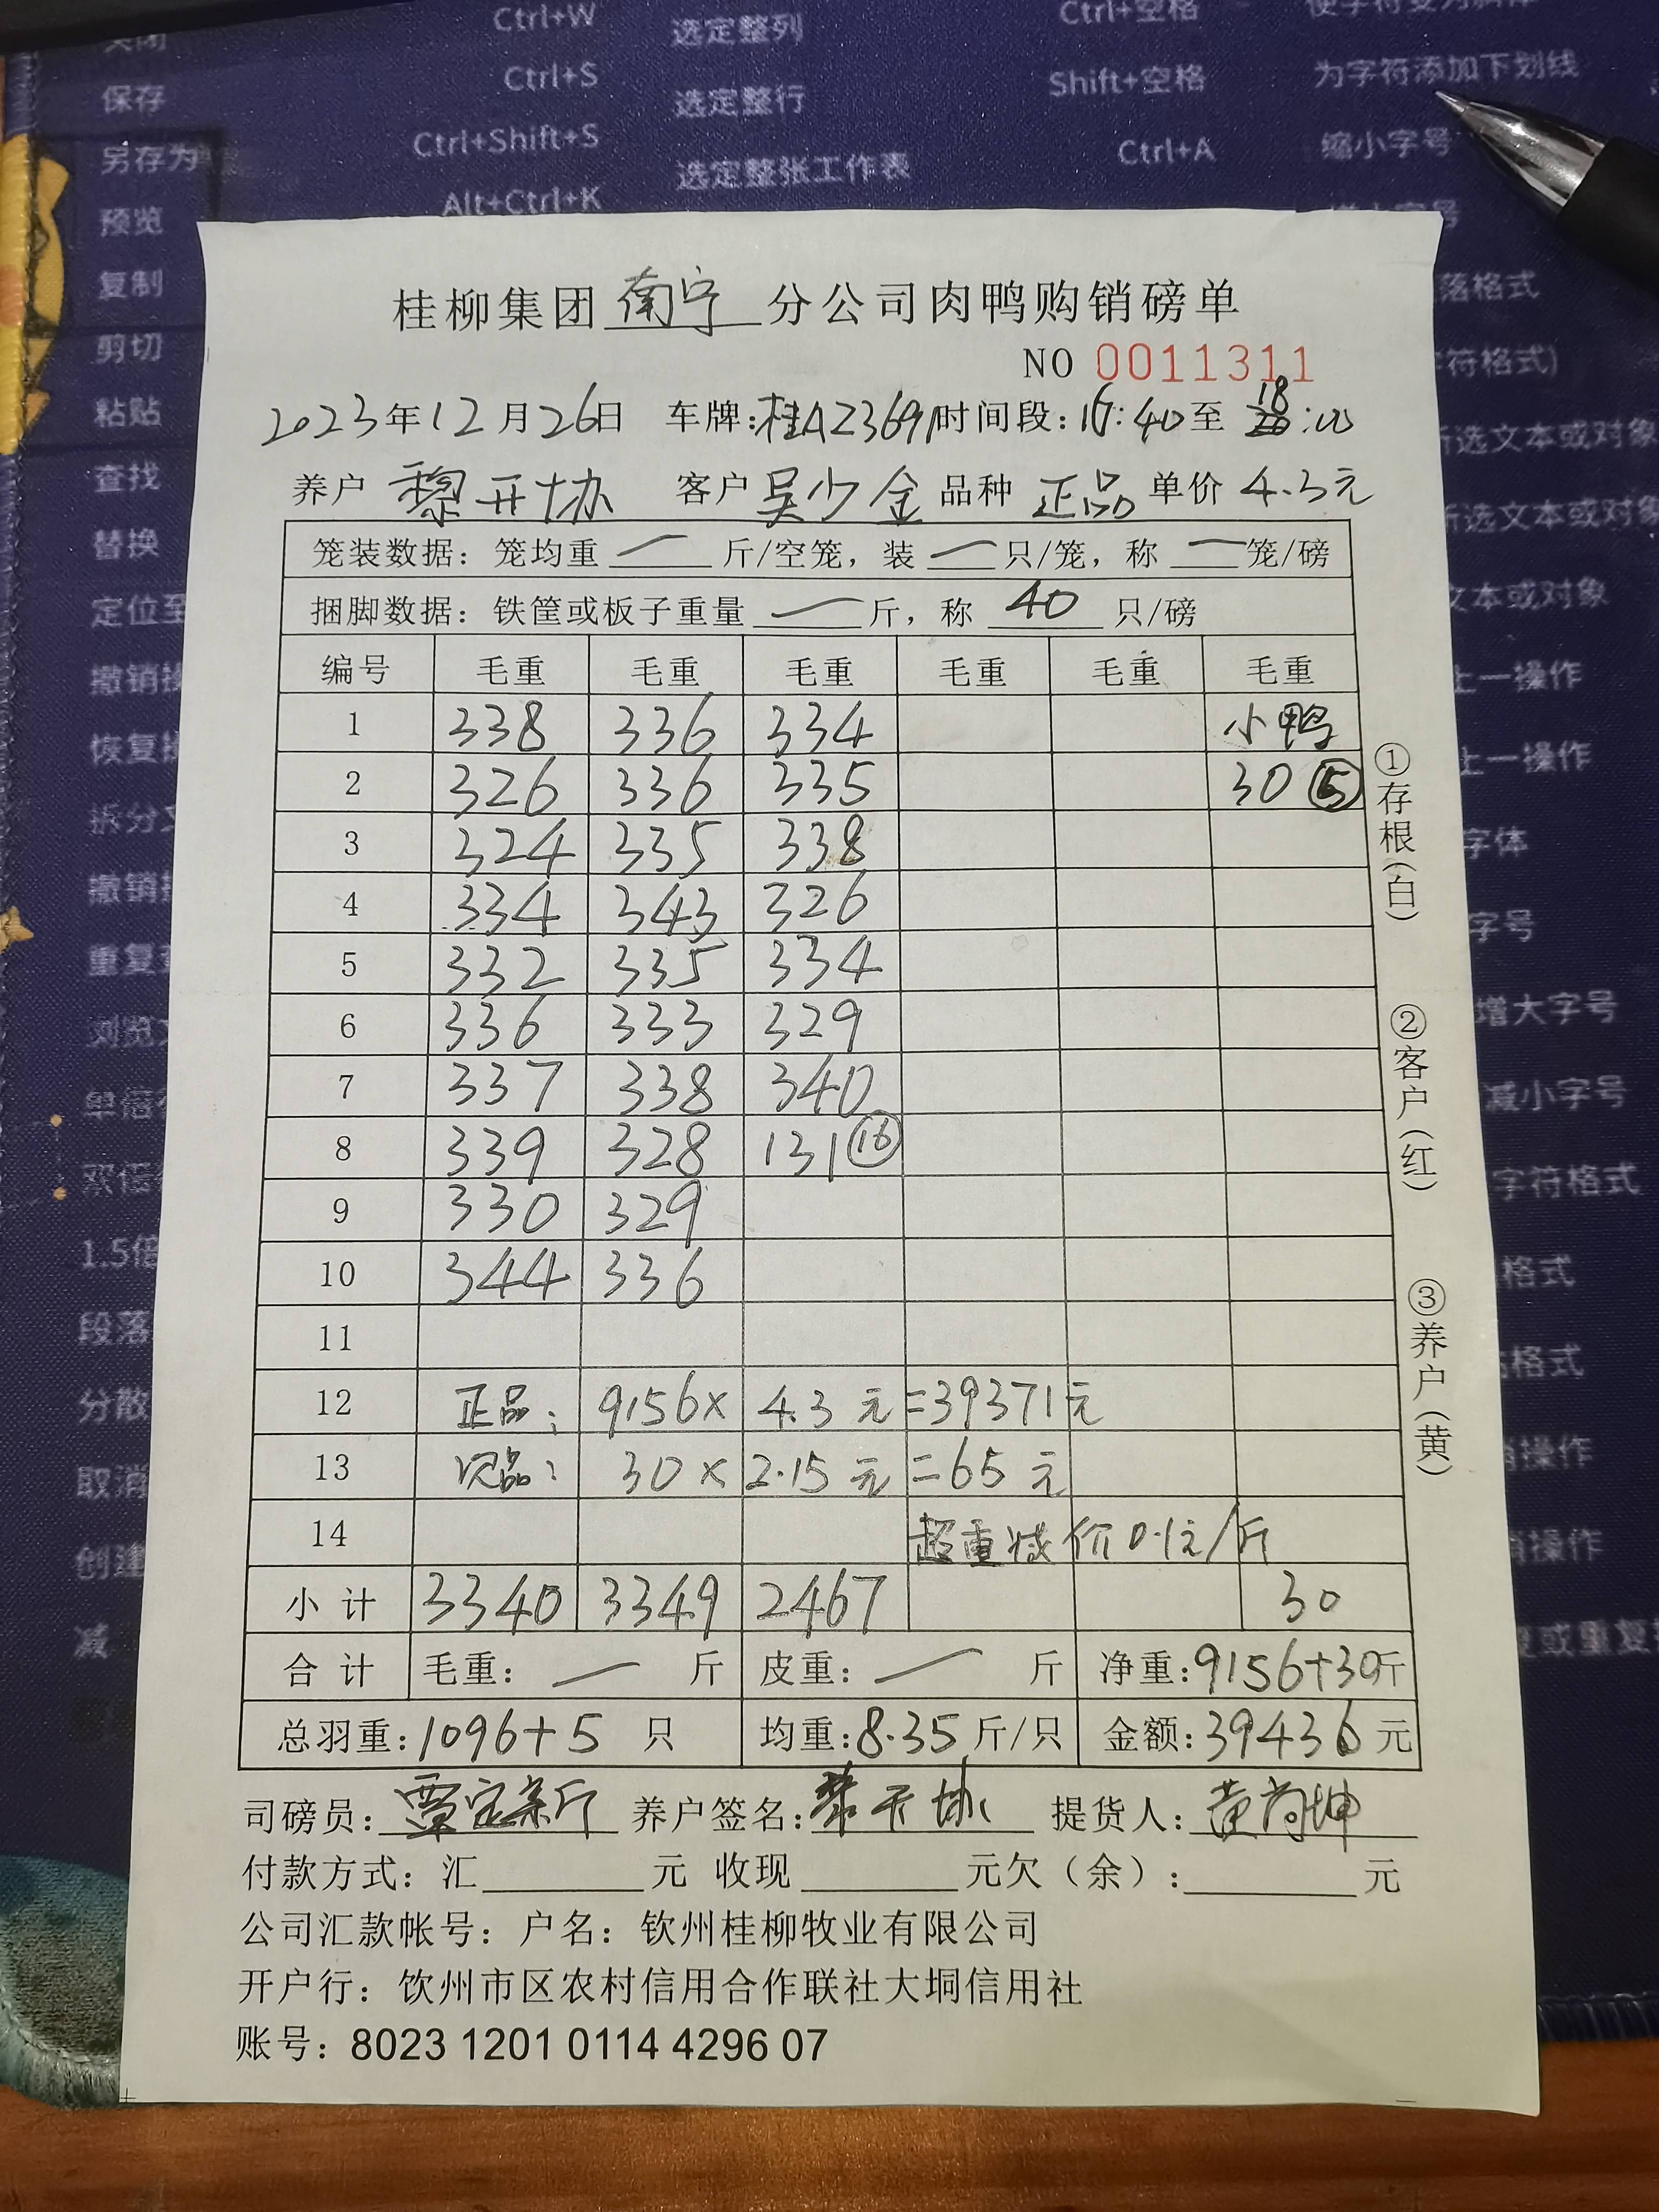 关闭
Ctrl+W
选定整列
Ctrl+空格
保存
Ctrl+S
选定整行
Shift+空格
为字符添加下划线
另存为
Ctrl+Shift+S
选定整张工作表
Ctrl+A
缩小字号
预览
Alt+Ctrl+K
字号
复制
落格式
剪切
字符格式)
粘贴
查找
所选文本或对象
替换
所选文本或对象
定位至
文本或对象
撤销
上一操作
恢复
上一操作
拆分
字体
撤销
字号
重复
浏览
增大字号
单倍
减小字号
双倍
字符格式
1.5倍
格式
段落
格式
分散
取消
销操作
创建
销操作
减
复或重复
桂柳集团 南宁 分公司肉鸭购销磅单
NO 0011311
2023年12月26日 车牌:桂AZ369 时间段:16:40至18:00
养户 黎开协 客户 吴少金 品种 正品 单价 4.3元
笼装数据：笼均重 — 斤/空笼，装 — 只/笼，称 — 笼/磅
捆脚数据：铁筐或板子重量 — 斤，称 40 只/磅
编号 毛重 毛重 毛重 毛重 毛重 毛重
1 338 336 334 小鸭
2 326 336 335 30 ⑤
3 324 335 338
4 334 343 326
5 332 335 334
6 336 333 329
7 337 338 340
8 339 328 131 ⑯
9 330 329
10 344 336
11
12 正品: 9156× 4.3 元 =39371元
13 次品: 30× 2.15 元 =65 元
14 超重减价0.1元/斤
小 计 3340 3349 2467 30
合 计 毛重： — 斤 皮重： — 斤 净重:9156+30斤
总羽重:1096+5 只 均重:8.35斤/只 金额:39436元
①存根(白)
②客户(红)
③养户(黄)
司磅员: 养户签名: 提货人: 黄尚坤
付款方式：汇 元 收现 元欠（余）: 元
公司汇款帐号：户名：钦州桂柳牧业有限公司
开户行：饮州市区农村信用合作联社大垌信用社
账号：8023 1201 0114 4296 07